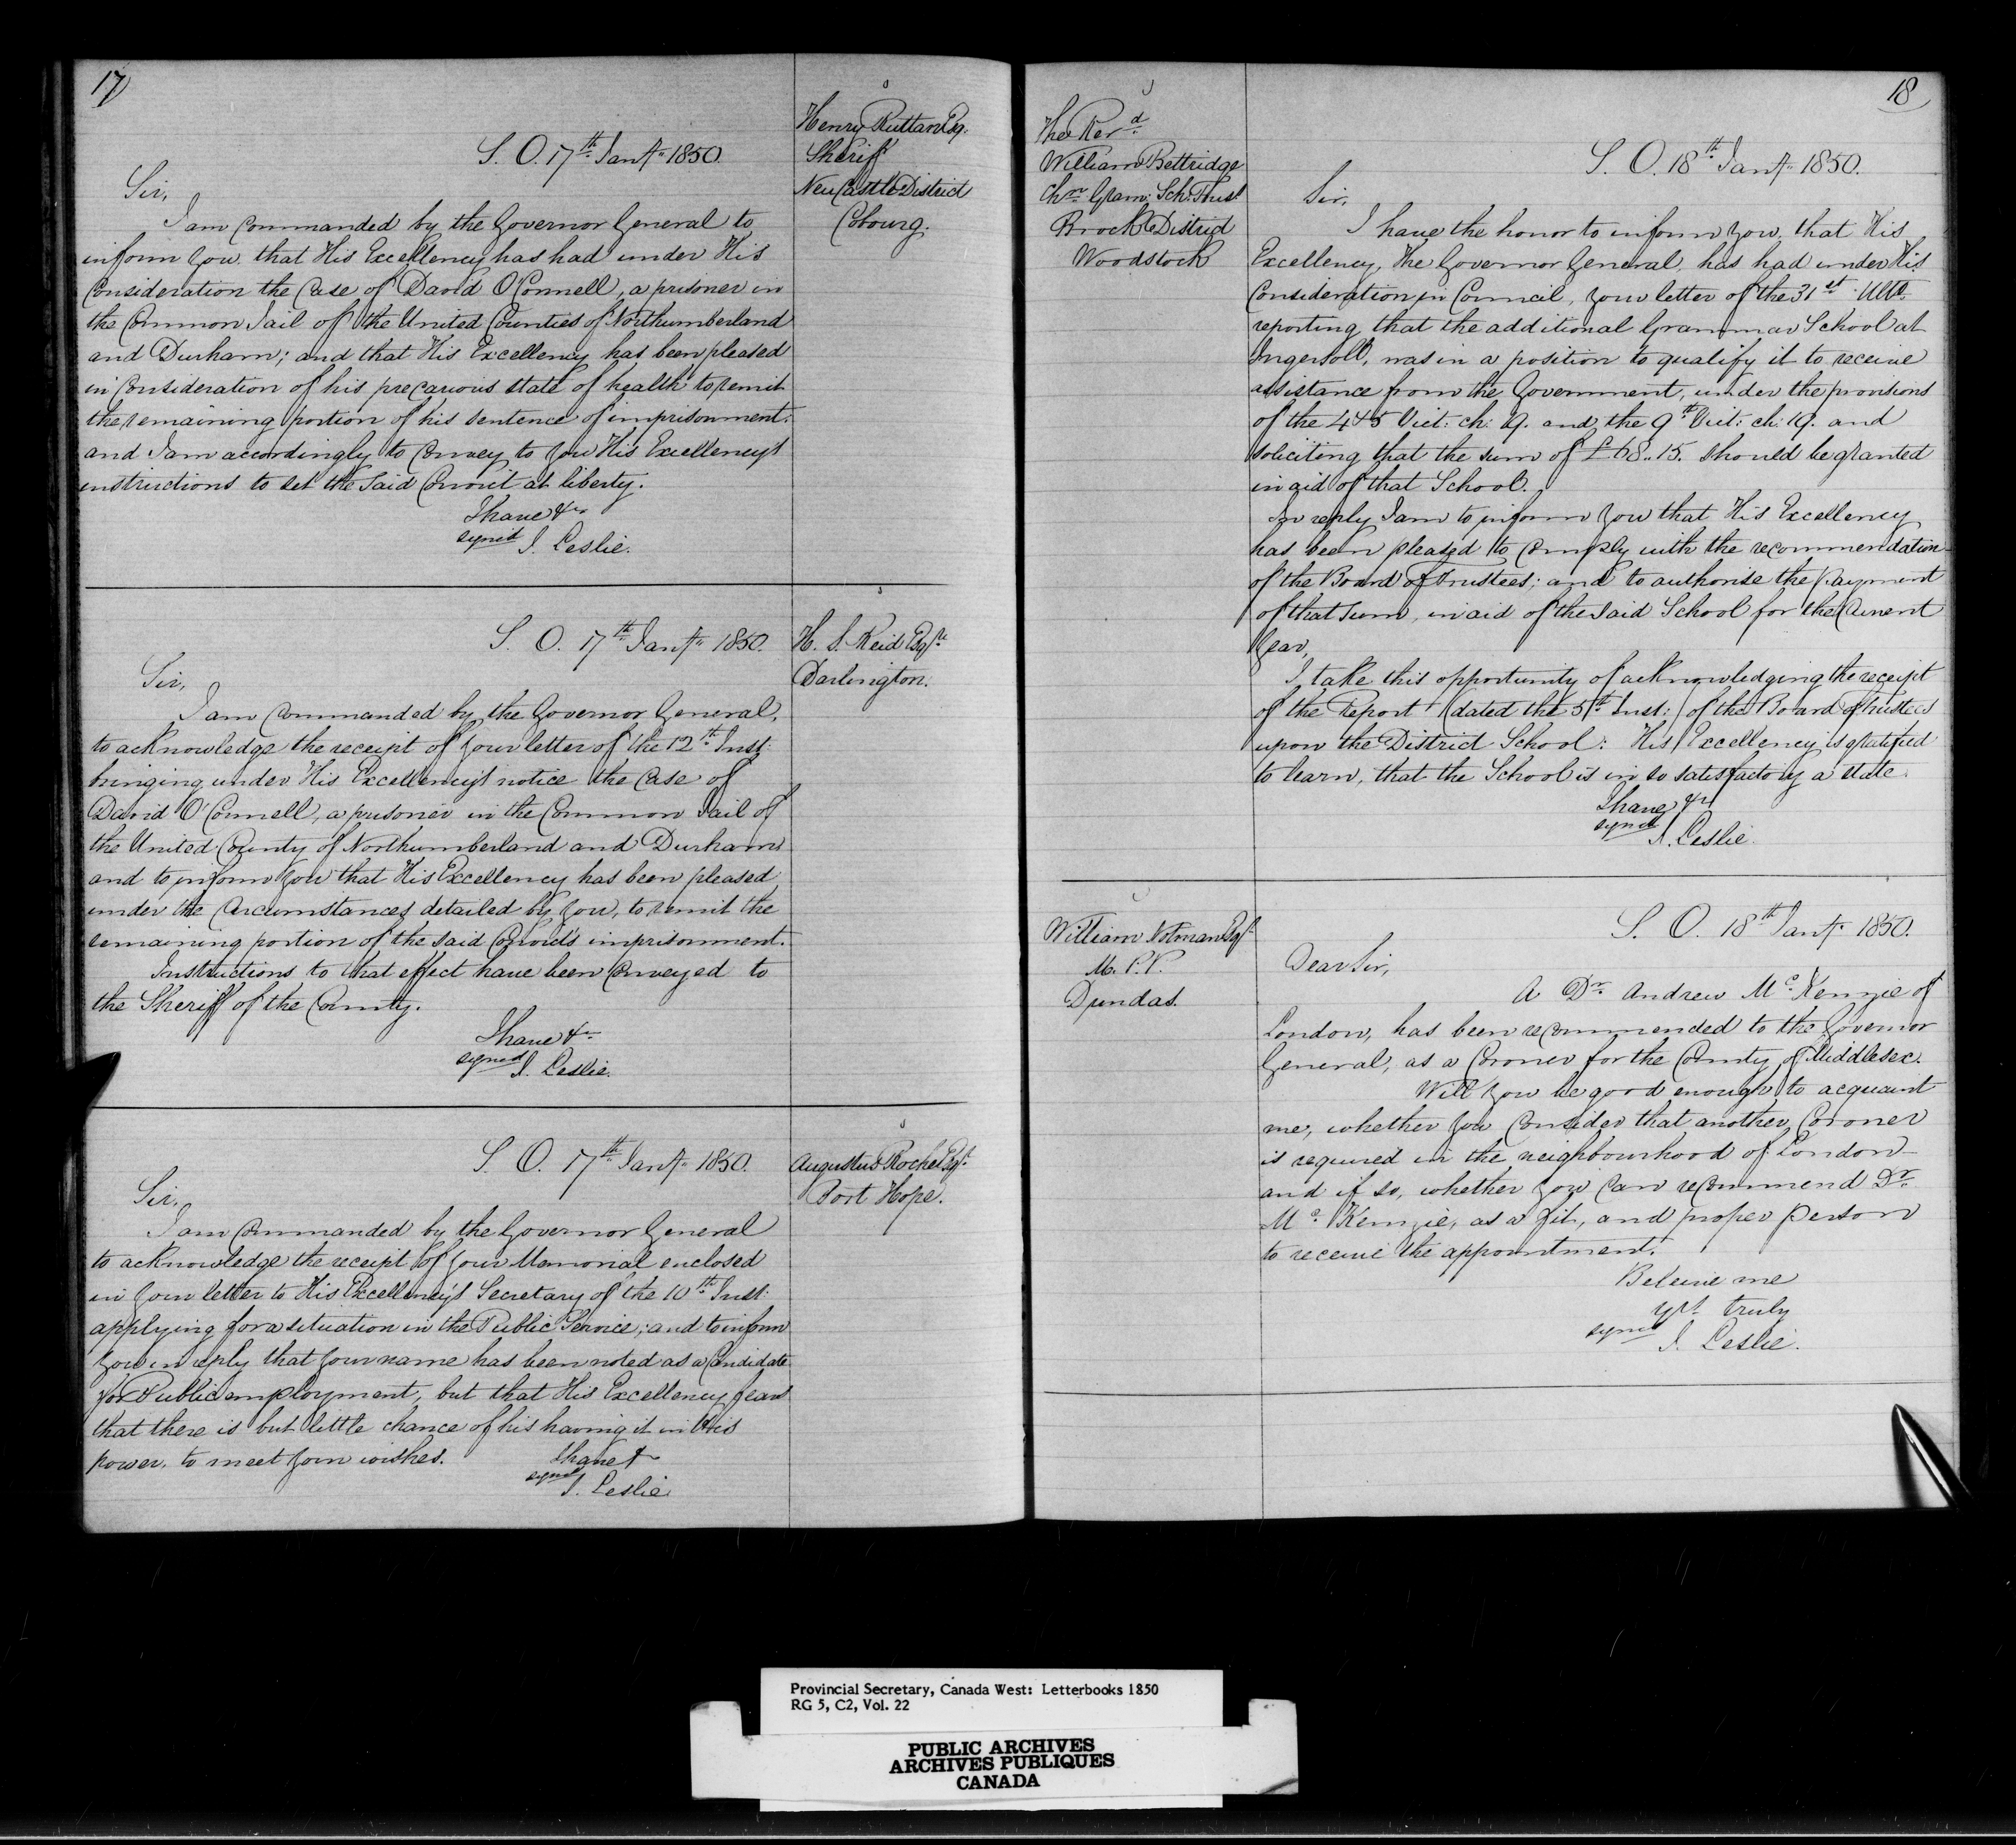 17
Henry Ruttan Esq.
Sheriff
NewCastle District
Cobourg.
S. O. 17th Jany 1850.
Sir,
I am Commanded by the Governor General to
inform you that His Excellency has had under His
Consideration the Case of David O'Connell, a prisoner in
the Common Jail of the United Counties of Northumberland
and Durham; and that His Excellency has been pleased
in Consideration of his precarious state of health to remit
the remaining portion of his sentence of imprisonment.
and I am accordingly to Convey to you His Excellency's
instructions to set the said Convict at liberty.
I have &c
signed J. Leslie.
H. S. Reid Esqre
Darlington.
S. O. 17th Jany 1850.
Sir,
I am Commanded by the Governor General,
to acknowledge the receipt of your letter of the 12th Inst:
bringing under His Excellency's notice the Case of
David O'Connell, a prisoner in the Common Jail of
the United County of Northumberland and Durham
and to inform you that His Excellency has been pleased
under the Circumstances detailed by you, to remit the
remaining portion of the said Convict's imprisonment.
Instructions to that effect have been Conveyed to
the Sheriff of the County.
I have &c
signed J. Leslie.
Augustus Roche Esqr.
Port Hope.
S. O. 17th Jany 1850.
Sir,
I am Commanded by the Governor General
to acknowledge the receipt of your Memorial enclosed
in your letter to His Excellency's Secretary of the 10th Inst:
applying for a situation in the Public Service; and to inform
you in reply that your name has been noted as a Candidate
for Public employment, but that His Excellency fears
that there is but little chance of his having it in His
power, to meet your wishes.
I have &
signed
J. Leslie
18
The Revd
William Bettridge
Chn Gram: Sch: Trust
Brock District
Woodstock
S. O. 18th Jany 1850.
Sir,
I have the honor to inform you, that His
Excellency, The Governor General, has had under His
Consideration in Council, your letter of the 31st Ulto.
reporting that the additional Grammar School at
Ingersoll, was in a position to qualify it to receive
assistance from the Government, under the provisions
of the 4 & 5 Vict: ch: 19. and the 9th Vict: ch: 19. and
soliciting that the sum of £68..15. should be granted
in aid of that School.
In reply I am to inform you that His Excellency
has been pleased to Comply with the recommendation
of the Board of Trustees; and to authorise the payment
of that sum, in aid of the said School for the Current
year,
I take this opportunity of acknowledging the receipt
of the Report (dated the 5th Inst:) of the Board of Trustees
upon the District School: His Excellency is gratified
to learn, that the School is in so satisfactory a state.
I have &c
signed
J. Leslie.
William Notman Esqr
M. P. P.
Dundas.
S. O. 18th Jany 1850.
Dear Sir,
A Dr. Andrew McKenzie of
London, has been recommended to the Governor
General, as a Coroner for the County of Middlesex.
Will you be good enough to acquaint
me, whether you Consider that another Coroner
is required in the neighbourhood of London -
and if so, whether you can recommend Dr.
McKenzie, as a fit, and proper person
to receive the appointment.
Beleive me
yrs truly
signed
J. Leslie.
Provincial Secretary, Canada West: Letterbooks 1850
RG 5, C2, Vol. 22
PUBLIC ARCHIVES
ARCHIVES PUBLIQUES
CANADA